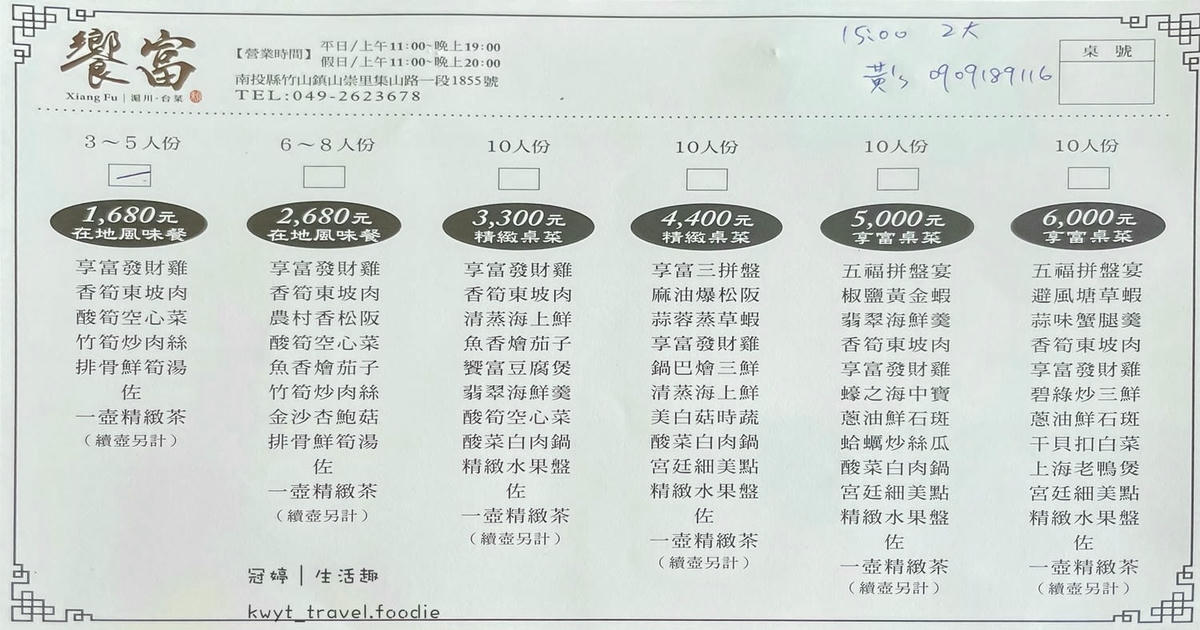 饗富
Xiang Fu | 滬川·台菜
【營業時間】
平日/上午11:00~晚上19:00
假日/上午11:00~晚上20:00
南投縣竹山鎮山崇里集山路一段1855號
TEL:049-2623678
15:00 2大
黃's 0909189116
桌號
3～5人份
1,680元
在地風味餐
享富發財雞
香筍東坡肉
酸筍空心菜
竹筍炒肉絲
排骨鮮筍湯
佐
一壺精緻茶
(續壺另計)
6～8人份
2,680元
在地風味餐
享富發財雞
香筍東坡肉
農村香松阪
酸筍空心菜
魚香燴茄子
竹筍炒肉絲
金沙杏鮑菇
排骨鮮筍湯
佐
一壺精緻茶
(續壺另計)
10人份
3,300元
精緻桌菜
享富發財雞
香筍東坡肉
清蒸海上鮮
魚香燴茄子
饗富豆腐煲
翡翠海鮮羹
酸筍空心菜
酸菜白肉鍋
精緻水果盤
佐
一壺精緻茶
(續壺另計)
10人份
4,400元
精緻桌菜
享富三拼盤
麻油爆松阪
蒜蓉蒸草蝦
享富發財雞
鍋巴燴三鮮
清蒸海上鮮
美白菇時蔬
酸菜白肉鍋
宮廷細美點
精緻水果盤
佐
一壺精緻茶
(續壺另計)
10人份
5,000元
享富桌菜
五福拼盤宴
椒鹽黃金蝦
翡翠海鮮羹
香筍東坡肉
享富發財雞
蠔之海中寶
蔥油鮮石斑
蛤蠣炒絲瓜
酸菜白肉鍋
宮廷細美點
精緻水果盤
佐
一壺精緻茶
(續壺另計)
10人份
6,000元
享富桌菜
五福拼盤宴
避風塘草蝦
蒜味蟹腿羹
香筍東坡肉
享富發財雞
碧綠炒三鮮
蔥油鮮石斑
干貝扣白菜
上海老鴨煲
宮廷細美點
精緻水果盤
佐
一壺精緻茶
(續壺另計)
冠婷 | 生活趣
kwyt_travel.foodie